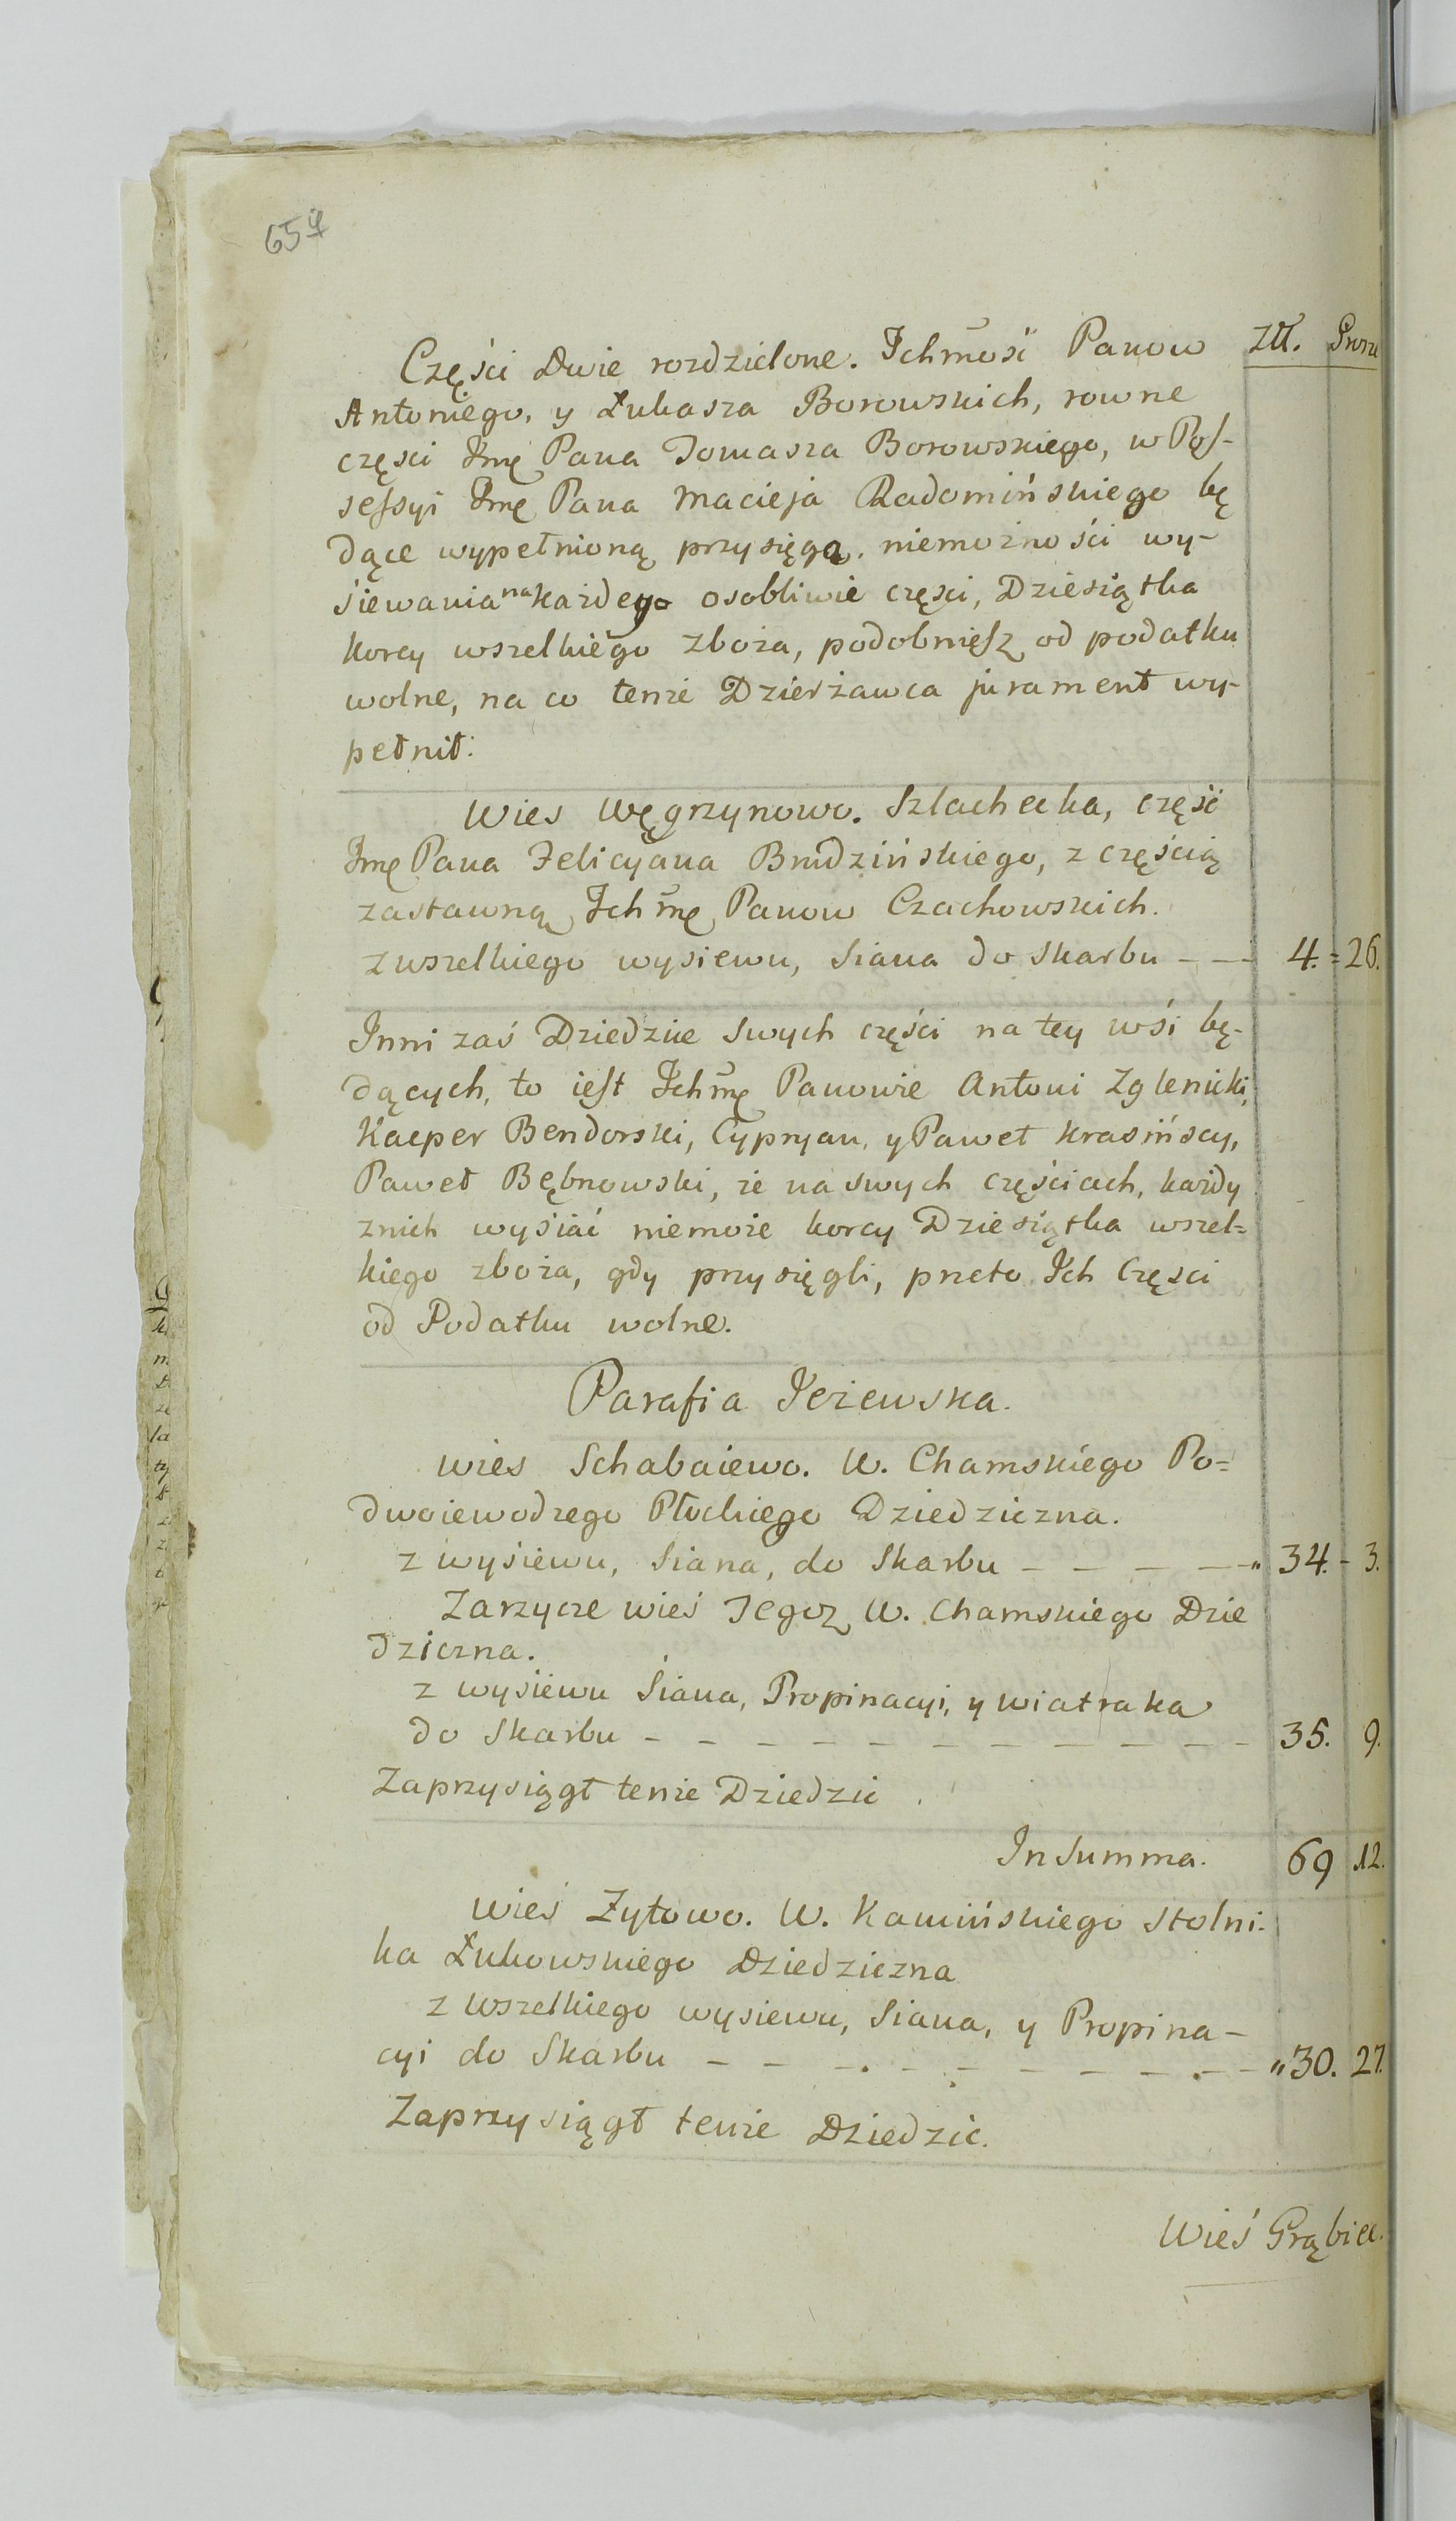 654
Części Dwie rozdzielone. Ichmość Panow Złł. Grosze
Antoniego, y Łukasza Borowskich, rowne
części Jmę Pana Tomasza Borowskiego, w Pos-
sessyi Jmę Pana Macieja Radomińskiego bę
dące wypełnioną przysięgą. niemożności wy-
siewania na każdego osobliwie części, Dziesiątka
korcy wszelkiego zboża, podobniesz od podatku
wolne, na co tenże Dzierżawca jurament wy-
pełnił:
Wies Węgrzynowo. Szlachecka, część
Jmę Pana Felicyana Brudzińskiego, z częścią
zastawną Ichmę Panow Czachowskich.
z wszelkiego wysiewu, Siana do Skarbu - - - 4. = 26.
Inni zaś Dziedzice swych części na tey wśi bę-
dących, to iest Ichmę Panowie Antoni Zglenicki,
Kacper Bendorski, Cypryan, y Paweł Krasińscy,
Paweł Bębnowski, że na swych częściach, każdy
znich wysiać niemoże korcy Dziesiątka wszel=
kiego zboża, gdy przysięgli, przeto Ich Części
od Podatku wolne.
Parafia Jeżewska.
wies Schabaiewo. W. Chamskiego Po=
dwoiewodzego Płockiego Dziedziczna.
z wysiewu, Siana, do Skarbu - - - - - " 34. - 3.
Zarzycze wieś Tegoz W. Chamskiego Dzie
dziczna.
z wysiewu Siana, Propinacyi, y wiatraka
do Skarbu - - - - - - - - - - - 35. 9.
Zaprzysiągł tenże Dziedzic
In Summa. 69 12.
Wieś Żytowo. W. Kamińskiego Stolni-
ka Łukowskiego Dziedziczna
z wszelkiego wysiewu, Siana, y Propina-
cyi do Skarbu - - - - - - - - - - " 30. 27.
Zaprzysiągł tenże Dziedzic.
Wieś Grąbiec.